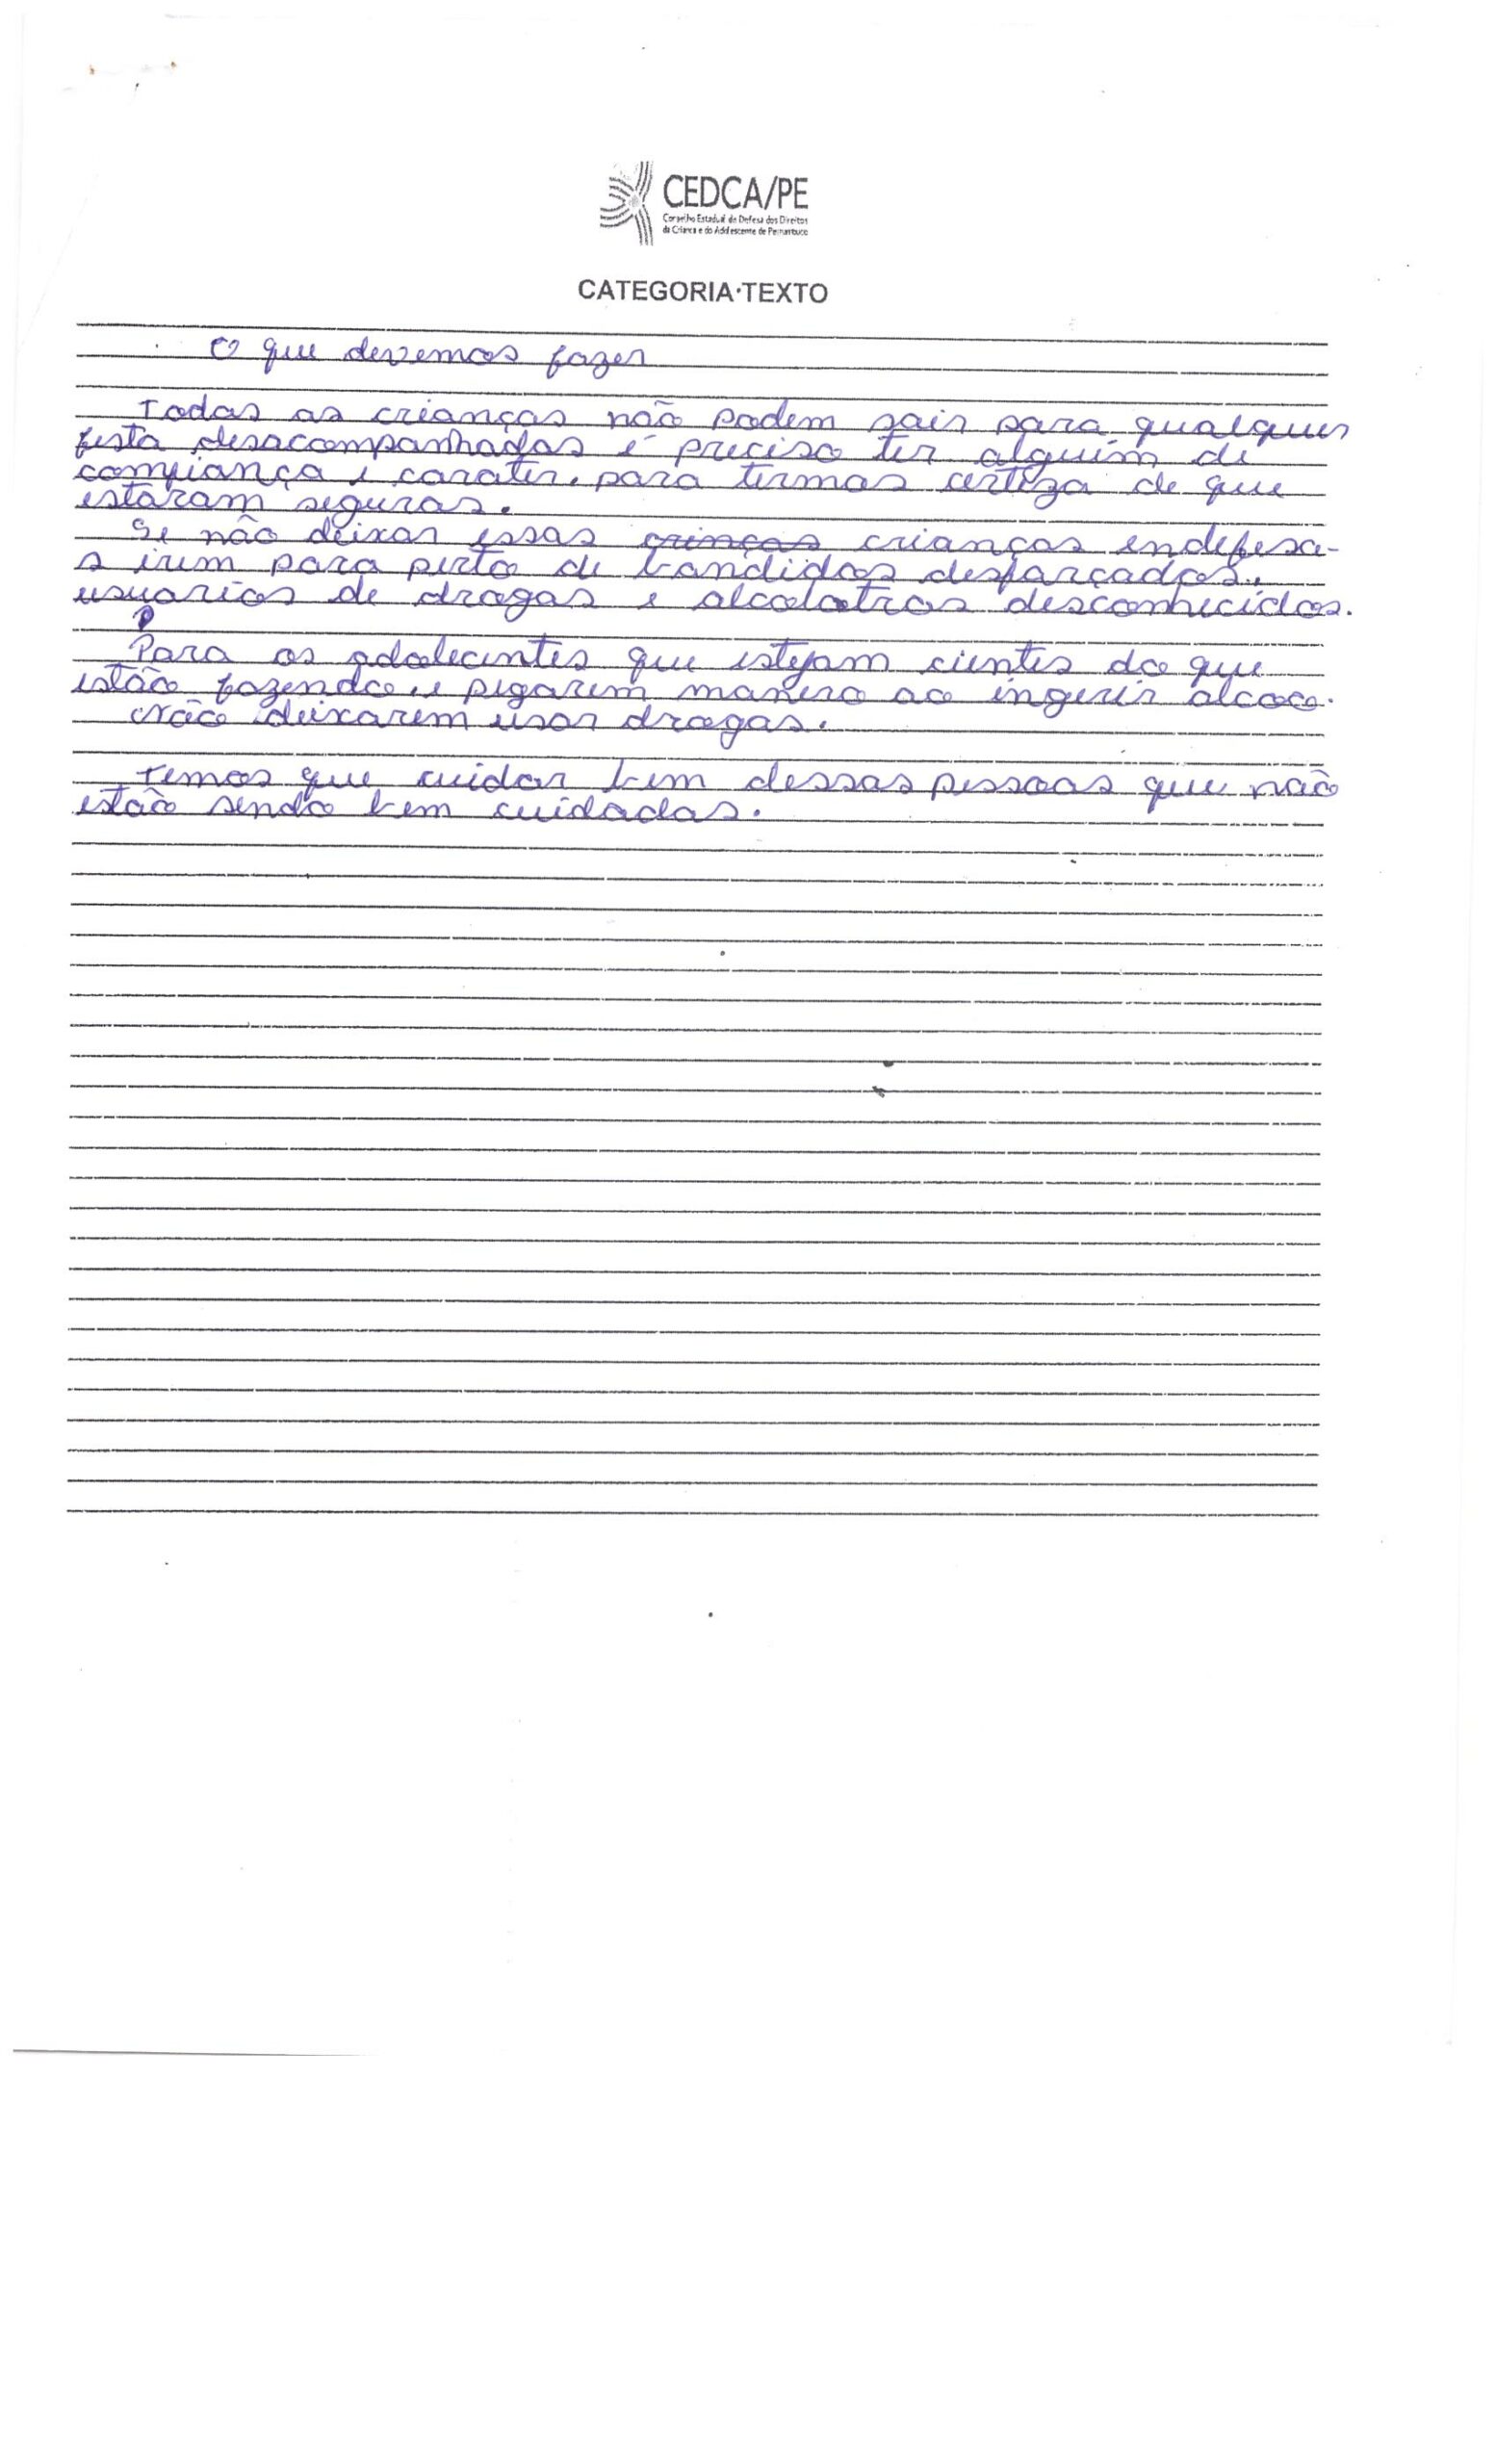 CEDCA/PE
Conselho Estadual de Defesa dos Direitos
da Criança e do Adolescente de Pernambuco
CATEGORIA·TEXTO
O que devemos fazer
Todas as crianças não podem sair para qualquer
festa desacompanhadas é preciso ter alguém de
comfiança e carater, para termos certeza de que
estaram seguras.
Se não deixar essas crinças crianças endefesa-
s irem para perto de bandidos desfarçados,
usuarios de drogas e alcolatras desconhecidos.
Para os adolecentes que estejam cientes do que
estão fazendo e pegarem maneiro ao ingerir alcoo.
Não deixarem usar drogas.
Temos que cuidar bem dessas pessoas que não
estão sendo bem cuidadas.